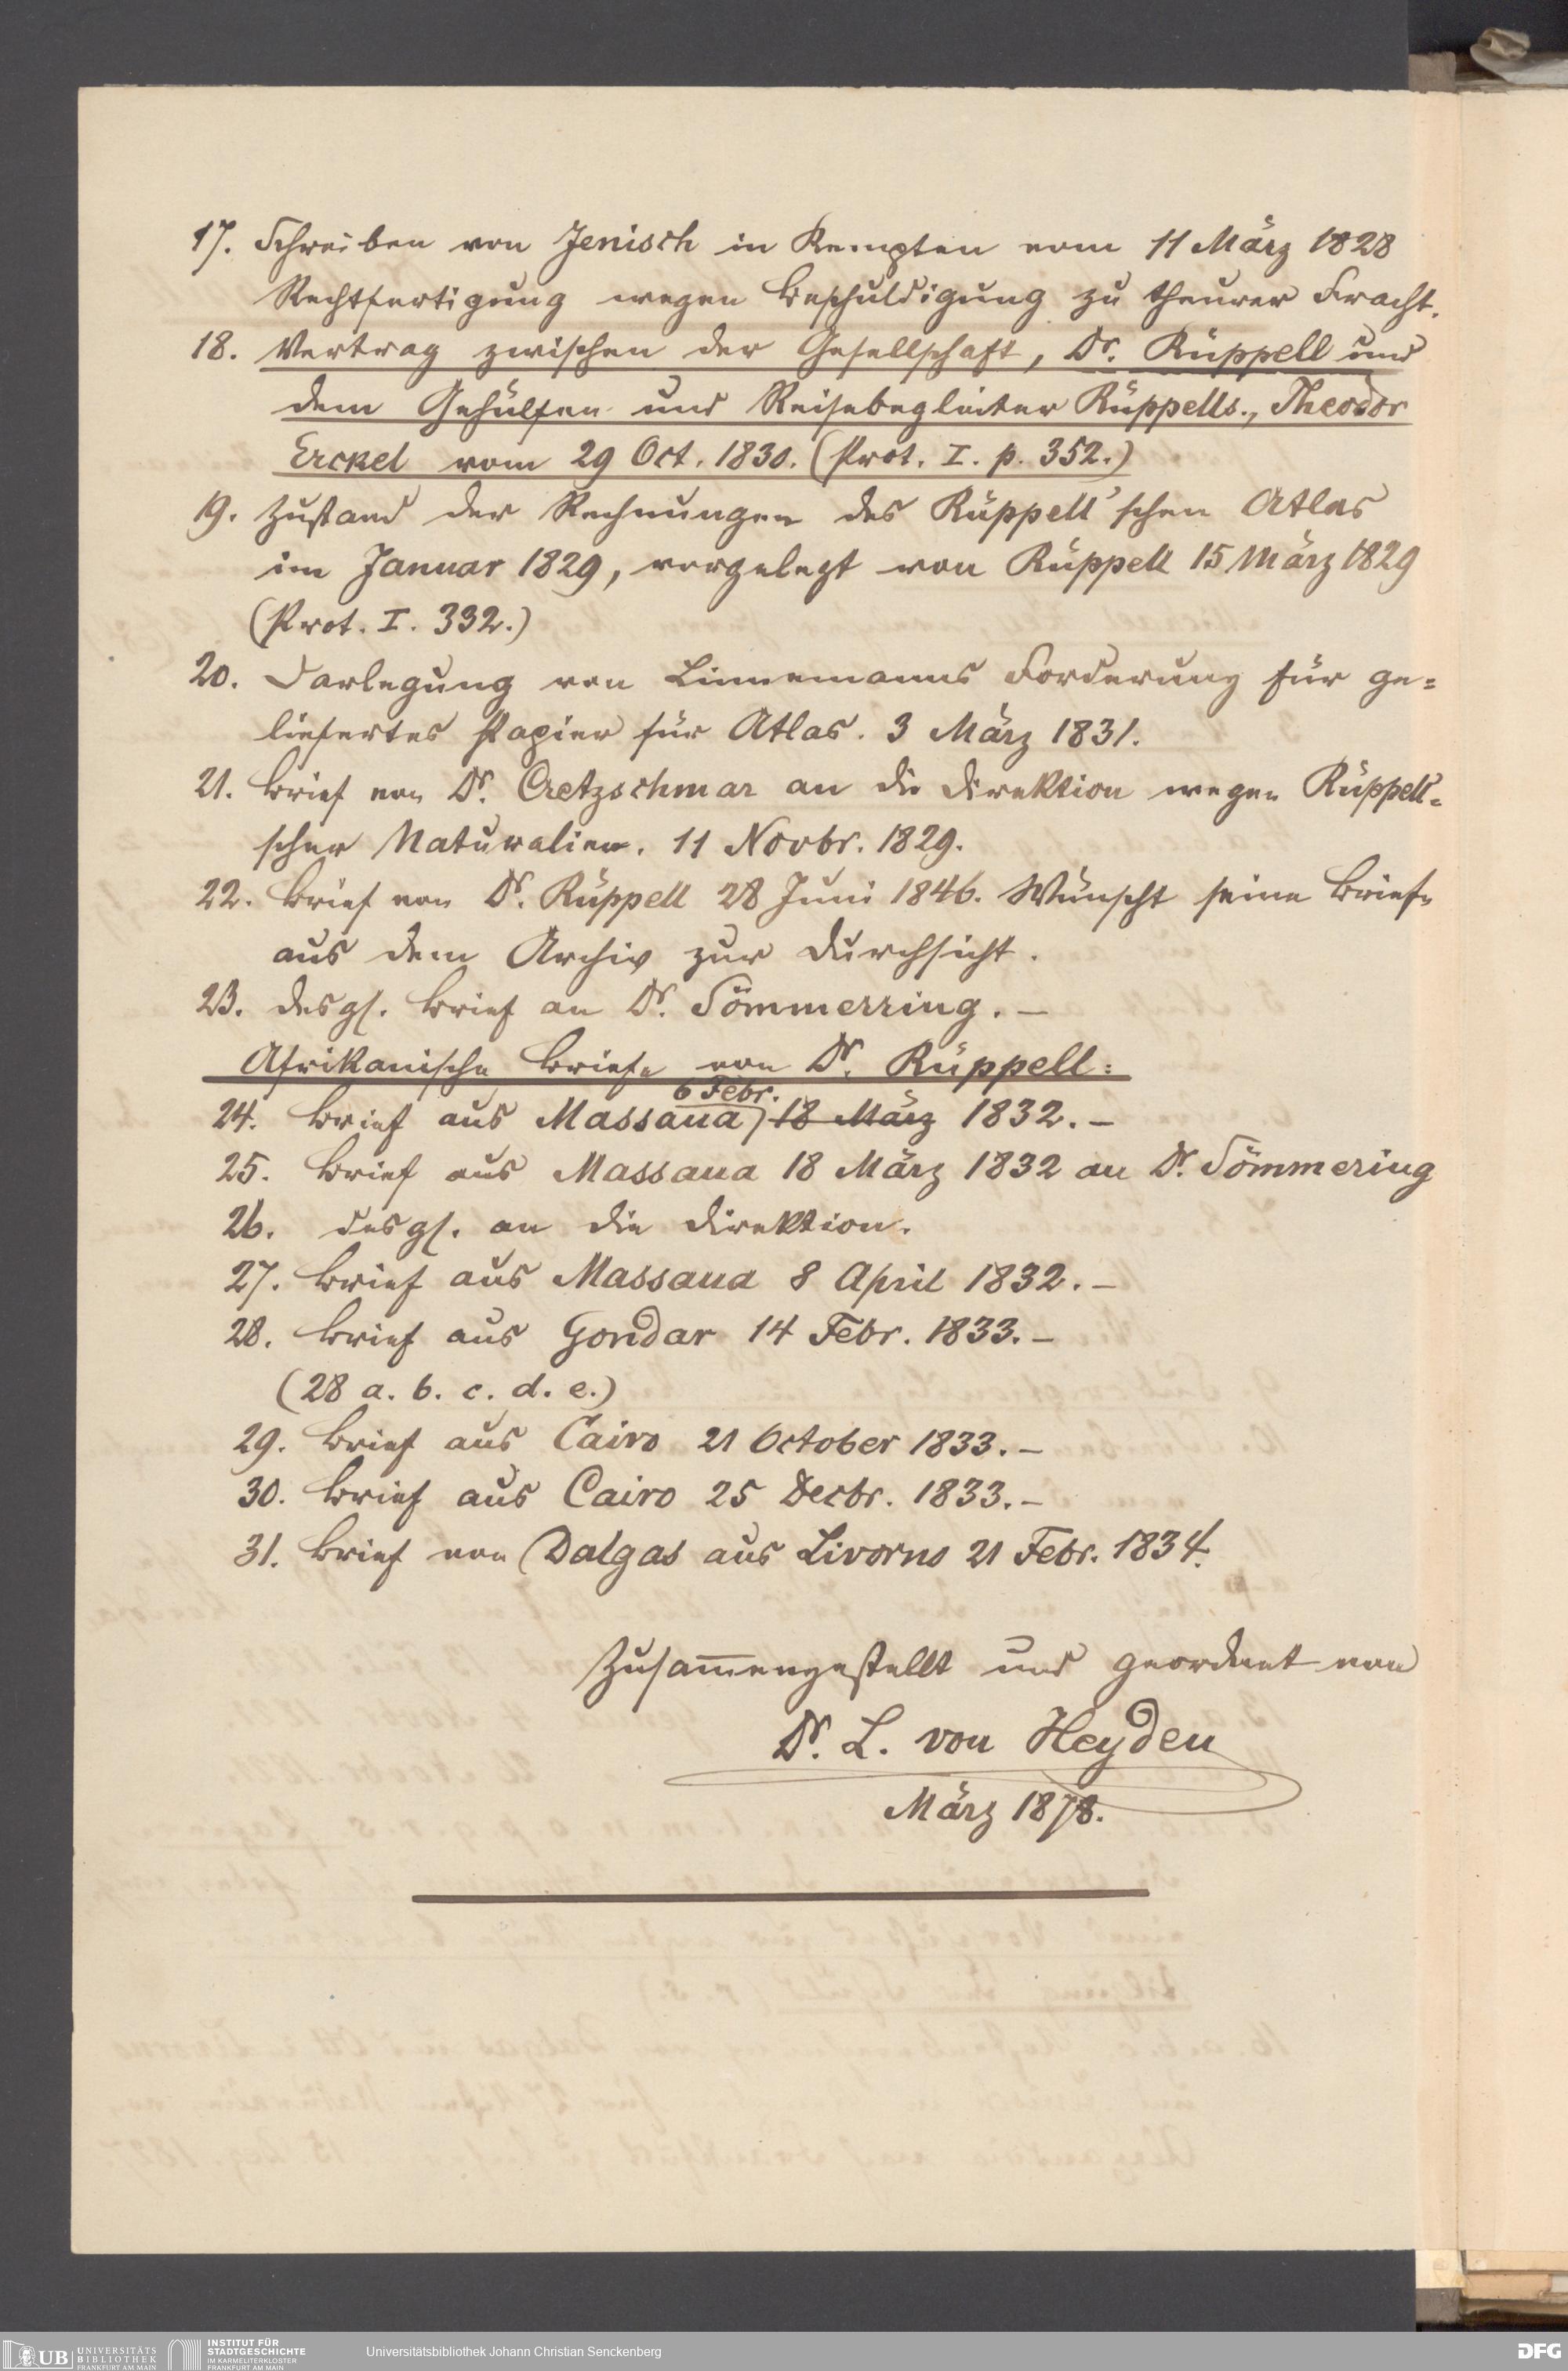 17. Schreiben von Jenisch in Kempten vom 11 März 1828
Rechtfertigung wegen Beschuldigung zu theurer Fracht.
18. Vertrag zwischen der Gesellschaft, Dr. Rüppell und
dem Gehülfen und Reisebegleiter Rüppells., Theodor
Erckel vom 29 Oct. 1830. (Prot. I. p. 352.)
19. Zustand der Rechnungen des Rüppell'schen Atlas
im Januar 1829, vorgelegt von Rüppell 15 März 1829
(Prot. I. 332.)
20. Darlegung von Linnemanns Forderung für ge=
liefertes Papier für Atlas. 3 März 1831.
21. Brief von Dr. Cretzschmar an die Direktion wegen Rüppell=
scher Naturalien. 11 Novbr. 1829.
22. Brief von Dr. Rüppell 28 Juni 1846. Wünscht seine Briefe
aus dem Archiv zur Durchsicht.
23. desgl. Brief an Dr. Sömmerring. –
Afrikanische Briefe von Dr. Rüppell:
6 Febr.
24. Brief aus Massaua 18 März 1832. –
25. Brief aus Massaua 18 März 1832 an Dr. Sömmering
26. desgl. an die Direktion.
27. Brief aus Massaua 8 April 1832. –
28. Brief aus Gondar 14 Febr. 1833. –
(28 a. b. c. d. e.)
29. Brief aus Cairo 21 October 1833. –
30. Brief aus Cairo 25 Decbr. 1833. –
31. Brief von Dalgas aus Livorno 21 Febr. 1834.
Zusam̅engestellt und geordnet von
Dr. L. von Heyden
März 1878.
UB UNIVERSITÄTS
BIBLIOTHEK
FRANKFURT AM MAIN
INSTITUT FÜR
STADTGESCHICHTE
IM KARMELITERKLOSTER
FRANKFURT AM MAIN
Universitätsbibliothek Johann Christian Senckenberg
DFG